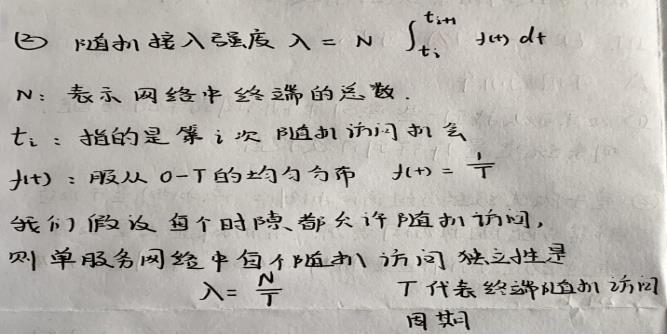 ② 随机接入强度 λ = N ∫_{t_i}^{t_{i+1}} f(t) dt
N：表示网络中终端的总数．
t_i：指的是第 i 次 随机访问机会
f(t)：服从 0-T 的均匀分布 f(t) = 1/T
我们假设每个时隙都允许随机访问，
则单服务网络中每个随机访问独立性是
λ = N/T T代表终端随机访问
周期